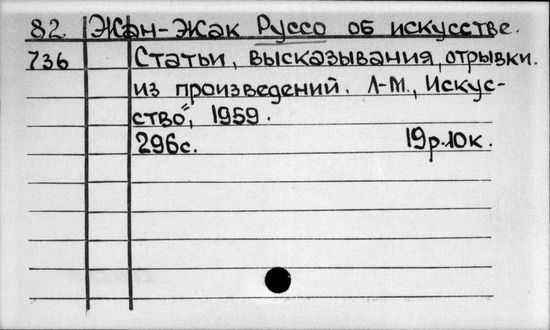 82 Жан-Жак Руссо об искусстве.
736 Статьи, высказывания, отрывки.
из произведений. Л-М., Искус-
ство", 1959.
296с. 19р.10к.